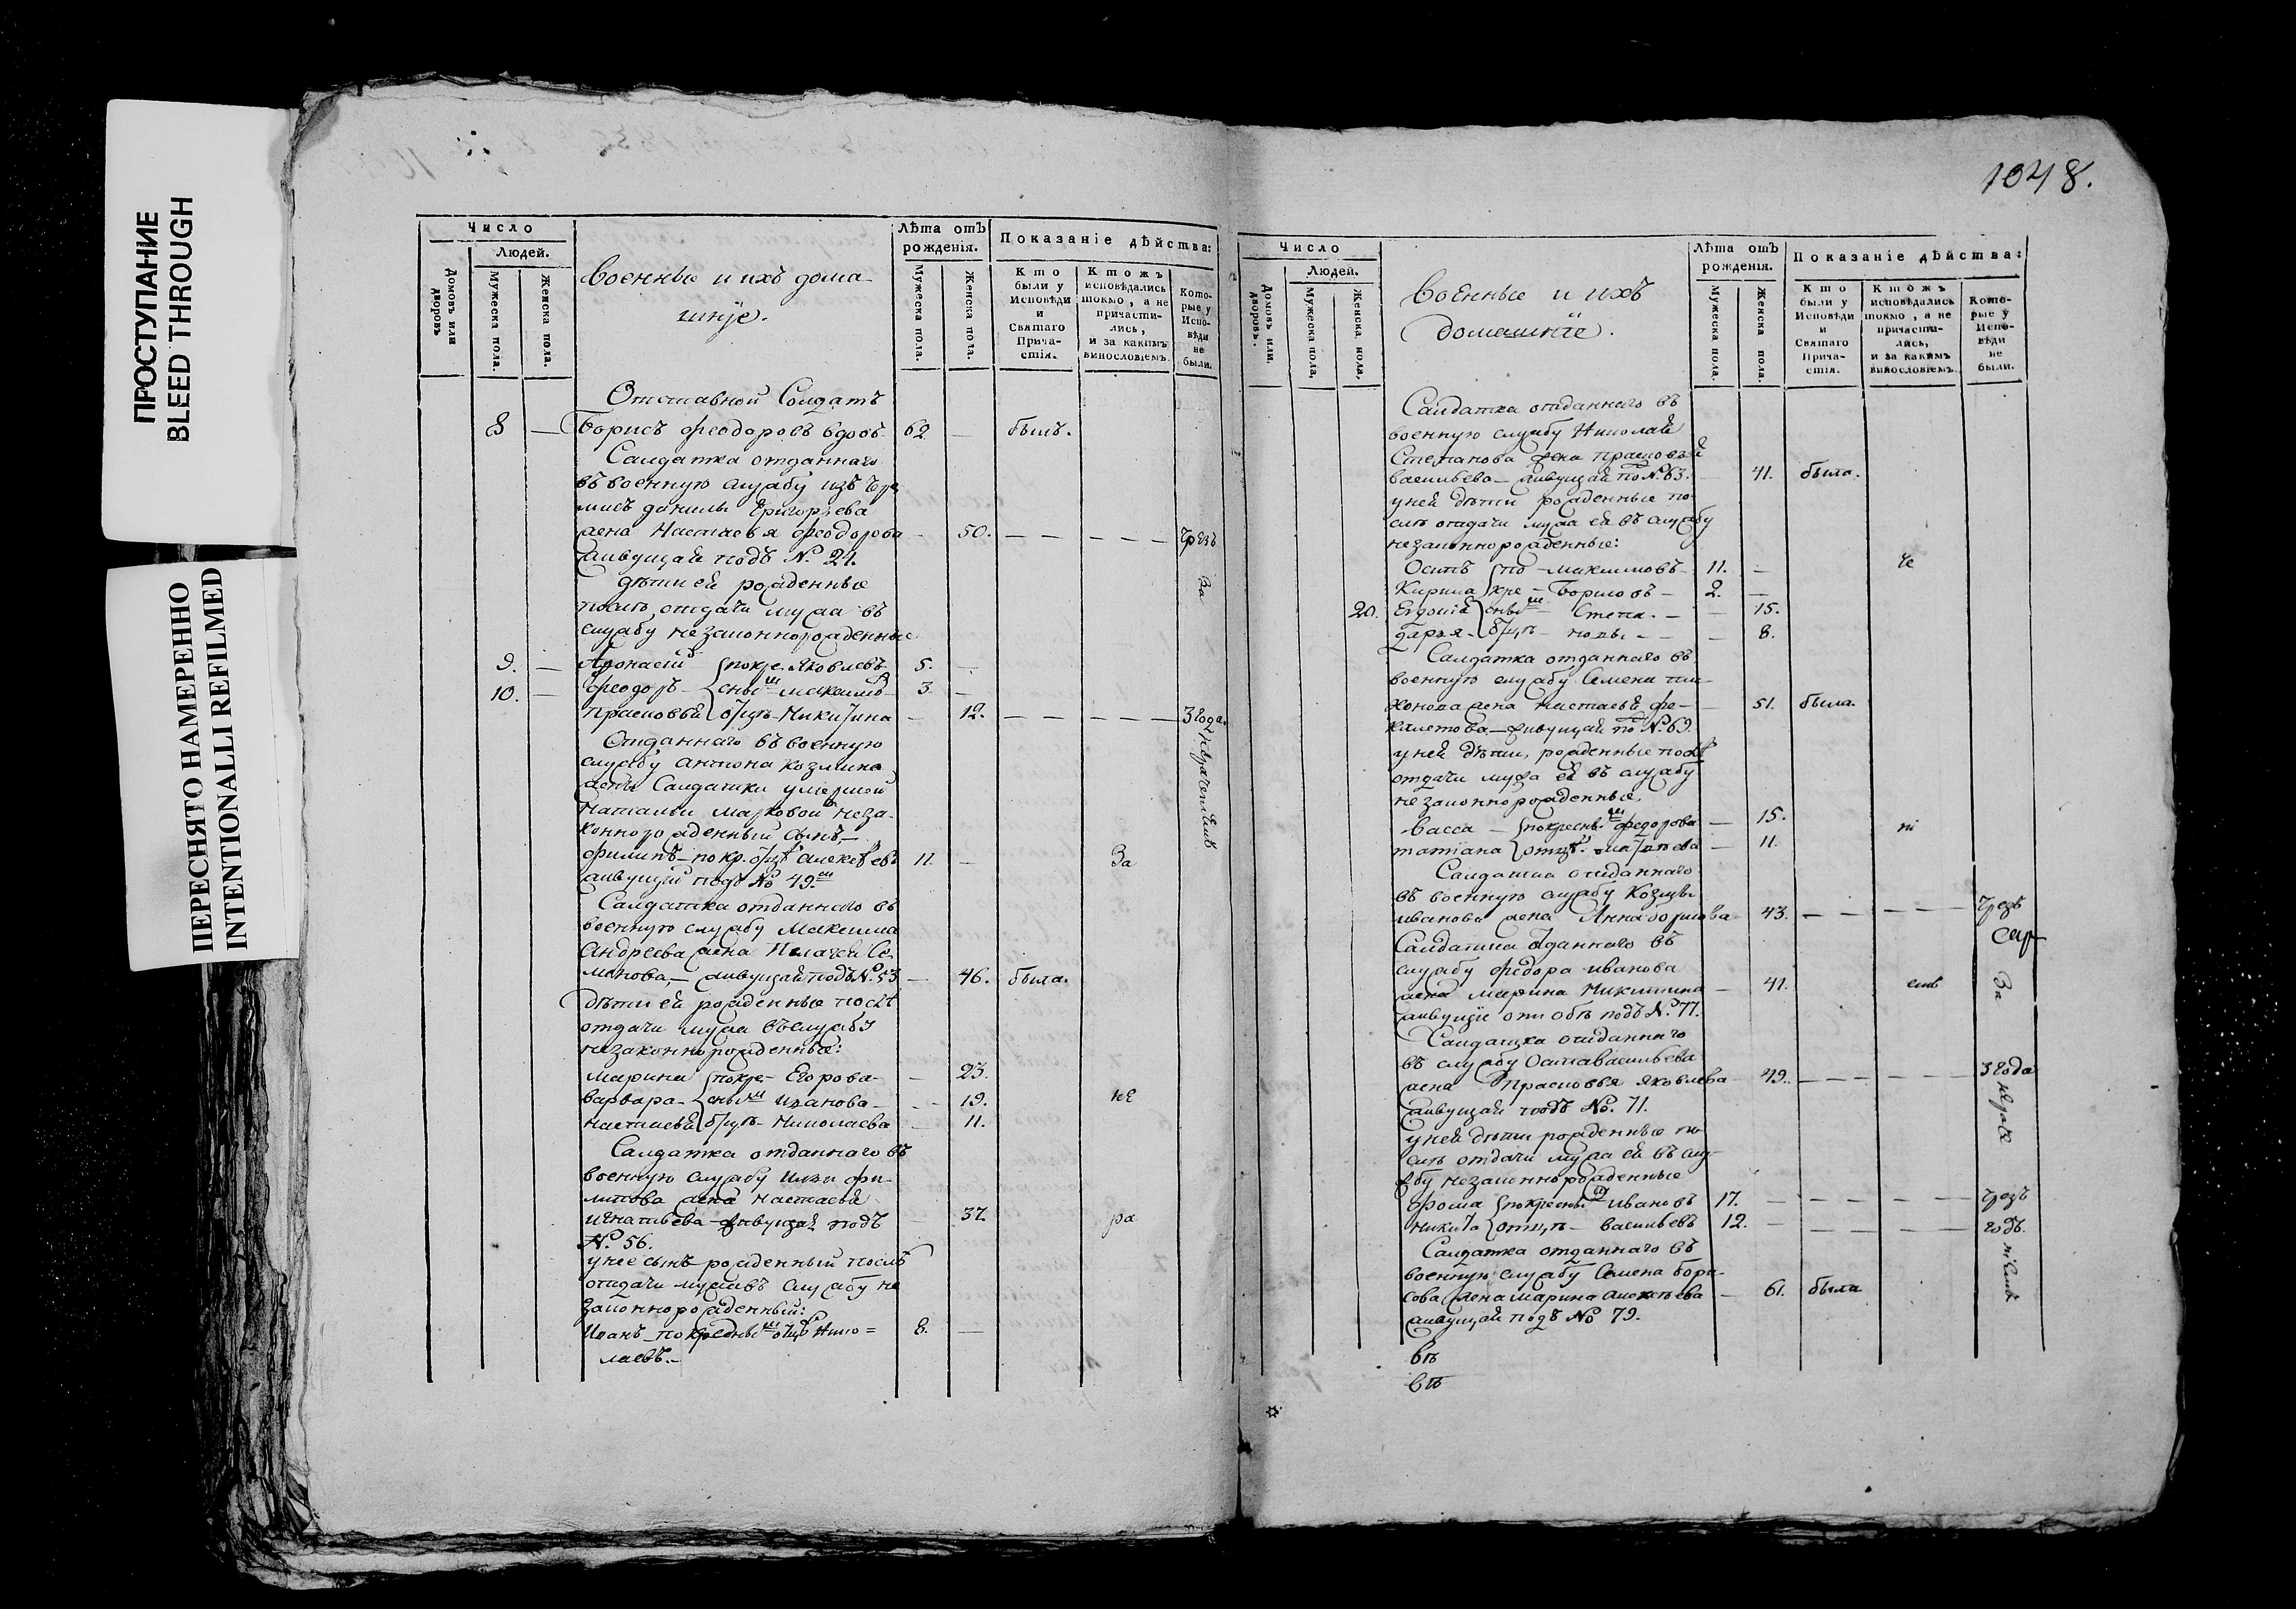 ПРОСТУПАНИЕ
BLEED THROUGH
ПЕРЕСНЯТО НАМЕРЕННО
INTENTIONALLI REFILMED
Число
Людей.
Домовъ или дворовъ
Мужеска пола.
Женска пола.
Военные и ихъ дома-
шнје.
Лѣта отъ рожденія.
Мужеска пола.
Женска пола.
Показаніе дѣйства:
Кто были у Исповѣди и Святаго Причастія.
Ктожъ исповѣдались токмо, а не причастились, и за какимъ винословіемъ.
Которые у Исповѣди не были.
Отставной Солдатъ
8 — Борисъ Феодоровъ вдовъ 62 — былъ.
Салдатка отданнаго
въ военную службу изъ
Данилы Григорьева
жена Настасья Феодорова — 50. — — — — — чрезъ
живущая подъ №. 21.
дѣти ей рожденные
послѣ отдачи мужа въ
службу незаконнорожденные
9. — Афонасій покре- Яковлевъ 5. —
10. — Феодоръ — сны^ш Максимо^в 3 —
Прасковья о/цъ- Никитина — 12. — — — — — 3 года.
Отданнаго въ военную
службу Антона Козмина
жены Салдатки умершой
Натальи Марковой неза-
коннорожденный сынъ —
Филипъ — по кр. о/цѣ Алексѣевъ 11 — За
живущій подъ № 49.
Салдатка отданнаго въ
военную службу Максима
Андреева жена Пелагея Се-
менова, — живущая подъ №. 53 — 46. была.
Дѣти ей рожденные послѣ
отдачи мужа въ службу
незаконнорожденные:
Марина покре- Егорова — 23.
Варвара — сны^ш Иванова — 19. не
Настасья о/цъ- Николаева — 11.
Салдатка отданнаго въ
военную службу Ильи Фи-
липова жена Настасья
Игнатьева — живущая подъ — 37. ра
№. 56.
у нее сынъ рожденный послѣ
отдачи мужа въ службу не
законнорожденный:
Иванъ — по кресны^ш о/цѣ Нико=
лаевъ. — 8. —
1048.
Число
Людей.
Домовъ или дворовъ.
Мужеска пола.
Женска пола.
Военные и ихъ
домашніе.
Лѣта отъ рожденія.
Мужеска пола.
Женска пола.
Показаніе дѣйства:
Кто были у Исповѣди и Святаго Причастія.
Ктожъ исповѣдались токмо, а не причастились, и за какимъ винословіемъ.
Которые у Исповѣди не были.
Салдатка отданнаго въ
военную службу Николая
Степанова жена Прасковья
Васильева — живущая по №. 63. — 41. была.
у ней дѣти рожденные по-
слѣ отдачи мужа ей въ службу
незаконнорожденные:
Осипъ по — Максимовъ — 11. —
Кирила кре — Борисовъ — 2. —
20. Евдокія сны^ш — Степа. — — 15.
Дарья — о/цъ — новы — — 8.
Салдатка отданнаго въ
военную службу Семена Ти-
хонова жена Настасья Фе- — 51. была.
живущая по № 69.
у ней дѣти, рожденные послѣ
отдачи мужа ей въ службу
незаконнорожденные,
Васса — покресны^ш Федорова — 15.
Татіана отцѣ. — 11.
Салдатка отданнаго
въ военную службу Козьмы
Иванова жена Анна Борисова — 43. — — — — — чрезъ
Салдатка о/данаго въ
службу Федора Иванова
жена Марина Никитина — 41.
живущіе они обѣ подъ №. 77.
Салдатка отданнаго
въ службу Васильева
жена Прасковья Яковлева 49. — — — — — 3 года
живущая подъ №. 71.
у ней дѣти рожденные по-
слѣ отдачи мужа ей въ слу-
жбу незаконнорожденные
Фома покресны^ш Ивановъ 17. — — — — — чрезъ
Никита отцъ — Васильевъ 12. — — — — — годъ.
Салдатка отданнаго въ
военную службу Семена Бори-
сова жена Марина Алексѣева — 61. была
живущая подъ № 79.